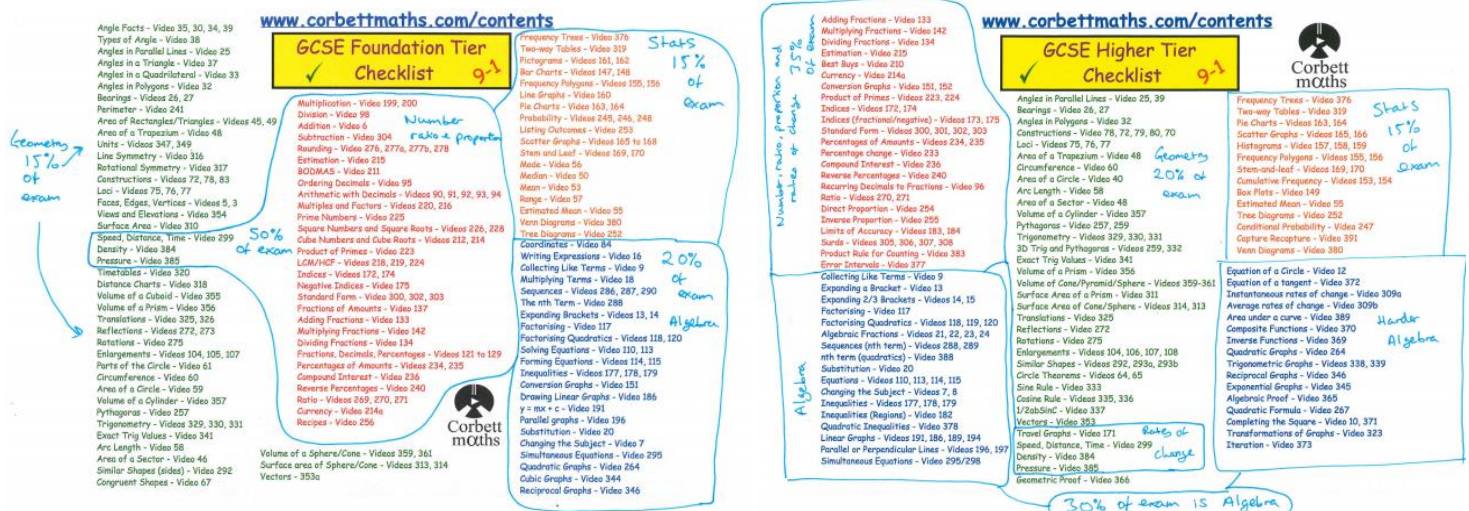 www.corbettmaths.com/contents
GCSE Foundation Tier
Checklist
9-1
Angle Facts - Video 35, 30, 34, 39
Types of Angle - Video 38
Angles in Parallel Lines - Video 25
Angles in a Triangle - Video 37
Angles in a Quadrilateral - Video 33
Angles in Polygons - Video 32
Bearings - Videos 26, 27
Perimeter - Video 241
Area of Rectangles/Triangles - Videos 45, 49
Area of a Trapezium - Video 48
Units - Videos 347, 349
Line Symmetry - Video 316
Rotational Symmetry - Video 317
Constructions - Videos 72, 78, 83
Loci - Videos 75, 76, 77
Faces, Edges, Vertices - Videos 5, 3
Views and Elevations - Video 354
Surface Area - Video 310
Speed, Distance, Time - Video 299
Density - Video 384
Pressure - Video 385
Timetables - Video 320
Distance Charts - Video 318
Volume of a Cuboid - Video 355
Volume of a Prism - Video 356
Translations - Video 325, 326
Reflections - Video 272, 273
Rotations - Video 275
Enlargements - Videos 104, 105, 107
Parts of the Circle - Video 61
Circumference - Video 60
Area of a Circle - Video 59
Volume of a Cylinder - Video 357
Pythagoras - Video 257
Trigonometry - Videos 329, 330, 331
Exact Trig Values - Video 341
Arc Length - Video 58
Area of a Sector - Video 46
Similar Shapes (sides) - Video 292
Congruent Shapes - Video 67
Geometry
15%
of
exam
Multiplication - Video 199, 200
Division - Video 98
Addition - Video 6
Subtraction - Video 304
Rounding - Video 276, 277a, 277b, 278
Estimation - Video 215
BODMAS - Video 211
Ordering Decimals - Video 95
Arithmetic with Decimals - Videos 90, 91, 92, 93, 94
Multiples and Factors - Videos 220, 216
Prime Numbers - Video 225
Square Numbers and Square Roots - Videos 226, 228
Cube Numbers and Cube Roots - Videos 212, 214
Product of Primes - Video 223
LCM/HCF - Videos 218, 219, 224
Indices - Videos 172, 174
Negative Indices - Video 175
Standard Form - Videos 300, 302, 303
Fractions of Amounts - Video 137
Adding Fractions - Video 133
Multiplying Fractions - Video 142
Dividing Fractions - Video 134
Fractions, Decimals, Percentages - Videos 121 to 129
Percentages of Amounts - Videos 234, 235
Compound Interest - Video 236
Reverse Percentages - Video 240
Ratio - Videos 269, 270, 271
Currency - Video 214a
Recipes - Video 256
Number
ratio & proportion
50%
of exam
Volume of a Sphere/Cone - Videos 359, 361
Surface area of Sphere/Cone - Videos 313, 314
Vectors - 353a
Corbett
maths
Frequency Trees - Video 376
Two-way Tables - Video 319
Pictograms - Videos 161, 162
Bar Charts - Videos 147, 148
Frequency Polygons - Videos 155, 156
Line Graphs - Video 160
Pie Charts - Videos 163, 164
Probability - Videos 245, 246, 248
Listing Outcomes - Video 253
Scatter Graphs - Videos 165 to 168
Stem and Leaf - Videos 169, 170
Mode - Video 56
Median - Video 50
Mean - Video 53
Range - Video 57
Estimated Mean - Video 55
Venn Diagrams - Video 380
Tree Diagrams - Video 252
Stats
15%
of
exam
Coordinates - Video 84
Writing Expressions - Video 16
Collecting Like Terms - Video 9
Multiplying Terms - Video 18
Sequences - Videos 286, 287, 290
The nth Term - Video 288
Expanding Brackets - Videos 13, 14
Factorising - Video 117
Factorising Quadratics - Videos 118, 120
Solving Equations - Video 110, 113
Forming Equations - Videos 114, 115
Inequalities - Videos 177, 178, 179
Conversion Graphs - Video 151
Drawing Linear Graphs - Video 186
y = mx + c - Video 191
Parallel graphs - Video 196
Substitution - Video 20
Changing the Subject - Video 7
Simultaneous Equations - Video 295
Quadratic Graphs - Video 264
Cubic Graphs - Video 344
Reciprocal Graphs - Video 346
20%
of
exam
Algebra
www.corbettmaths.com/contents
GCSE Higher Tier
Checklist
9-1
Corbett
maths
Number, ratio, proportion and
rates of change 35%
of exam
Adding Fractions - Video 133
Multiplying Fractions - Video 142
Dividing Fractions - Video 134
Estimation - Video 215
Best Buys - Video 210
Currency - Video 214a
Conversion Graphs - Video 151, 152
Product of Primes - Videos 223, 224
Indices - Videos 172, 174
Indices (fractional/negative) - Videos 173, 175
Standard Form - Videos 300, 301, 302, 303
Percentages of Amounts - Videos 234, 235
Percentage change - Video 233
Compound Interest - Video 236
Reverse Percentages - Video 240
Recurring Decimals to Fractions - Video 96
Ratio - Videos 270, 271
Direct Proportion - Video 254
Inverse Proportion - Video 255
Limits of Accuracy - Videos 183, 184
Surds - Videos 305, 306, 307, 308
Product Rule for Counting - Video 383
Error Intervals - Video 377
Algebra
Collecting Like Terms - Video 9
Expanding a Bracket - Video 13
Expanding 2/3 Brackets - Videos 14, 15
Factorising - Video 117
Factorising Quadratics - Videos 118, 119, 120
Algebraic Fractions - Videos 21, 22, 23, 24
Sequences (nth term) - Videos 288, 289
nth term (quadratics) - Video 388
Substitution - Video 20
Equations - Videos 110, 113, 114, 115
Changing the Subject - Videos 7, 8
Inequalities - Videos 177, 178, 179
Inequalities (Regions) - Video 182
Quadratic Inequalities - Video 378
Linear Graphs - Videos 191, 186, 189, 194
Parallel or Perpendicular Lines - Videos 196, 197
Simultaneous Equations - Video 295/298
Angles in Parallel Lines - Video 25, 39
Bearings - Videos 26, 27
Angles in Polygons - Video 32
Constructions - Videos 78, 72, 79, 80, 70
Loci - Videos 75, 76, 77
Area of a Trapezium - Video 48
Circumference - Video 60
Area of a Circle - Video 40
Arc Length - Video 58
Area of a Sector - Video 48
Volume of a Cylinder - Video 357
Pythagoras - Video 257, 259
Trigonometry - Videos 329, 330, 331
3D Trig and Pythagoras - Videos 259, 332
Exact Trig Values - Video 341
Volume of a Prism - Video 356
Volume of Cone/Pyramid/Sphere - Videos 359-361
Surface Area of a Prism - Video 311
Surface Area of Cone/Sphere - Videos 314, 313
Translations - Video 325
Reflections - Video 272
Rotations - Video 275
Enlargements - Videos 104, 106, 107, 108
Similar Shapes - Videos 292, 293a, 293b
Circle Theorems - Videos 64, 65
Sine Rule - Video 333
Cosine Rule - Videos 335, 336
1/2abSinC - Video 337
Vectors - Video 353
Travel Graphs - Video 171
Speed, Distance, Time - Video 299
Density - Video 384
Pressure - Video 385
Geometric Proof - Video 366
Geometry
20% of
exam
Rates of
Change
Frequency Trees - Video 376
Two-way Tables - Video 319
Pie Charts - Videos 163, 164
Scatter Graphs - Videos 165, 166
Histograms - Videos 157, 158, 159
Frequency Polygons - Videos 155, 156
Stem-and-leaf - Videos 169, 170
Cumulative Frequency - Videos 153, 154
Box Plots - Video 149
Estimated Mean - Video 55
Tree Diagrams - Video 252
Conditional Probability - Video 247
Capture Recapture - Video 391
Venn Diagrams - Video 380
Stats
15%
of
exam
Equation of a Circle - Video 12
Equation of a tangent - Video 372
Instantaneous rates of change - Video 309a
Average rates of change - Video 309b
Area under a curve - Video 389
Composite Functions - Video 370
Inverse Functions - Video 369
Quadratic Graphs - Video 264
Trigonometric Graphs - Videos 338, 339
Reciprocal Graphs - Video 346
Exponential Graphs - Video 345
Algebraic Proof - Video 365
Quadratic Formula - Video 267
Completing the Square - Video 10, 371
Transformations of Graphs - Video 323
Iteration - Video 373
Harder
Algebra
30% of exam is Algebra